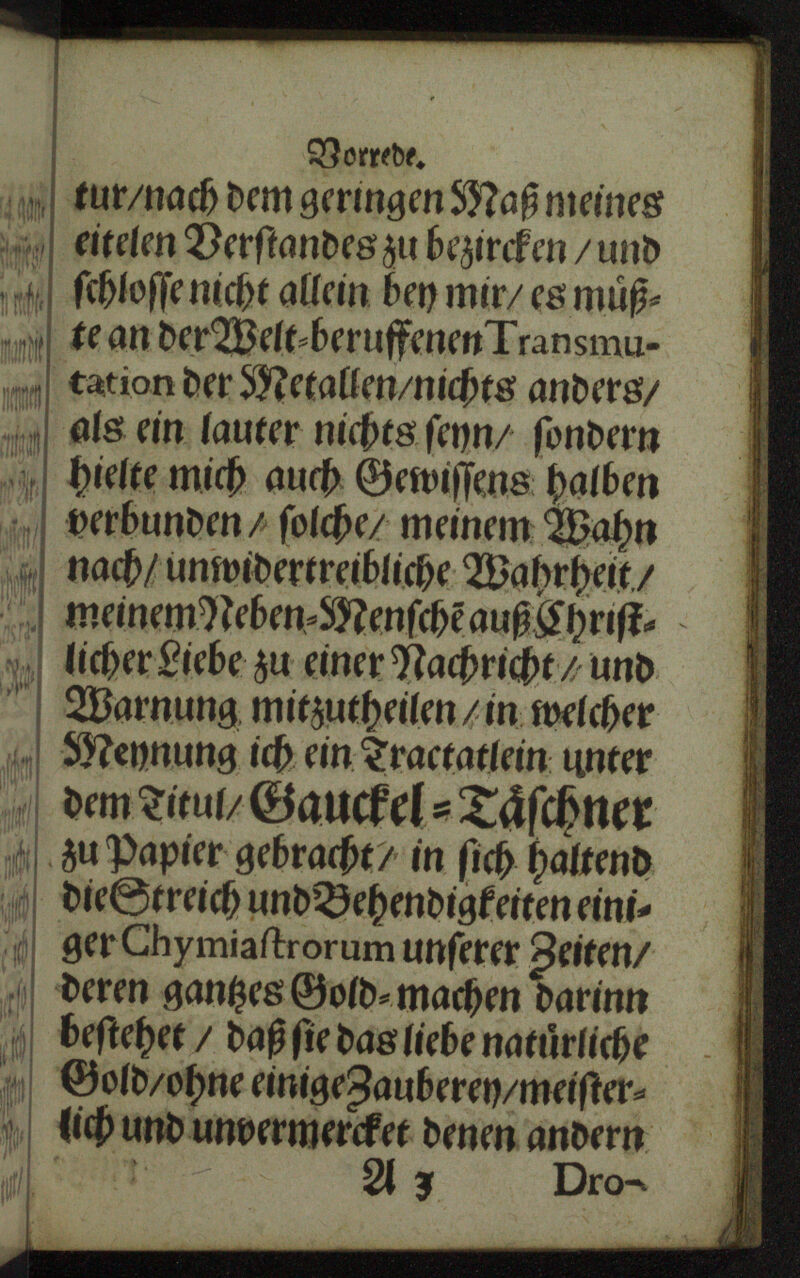 Vorrede.
tur/nach dem geringen Maß meines
eitelen Verſtandes zu bezircken / und
ſchloſſe nicht allein bey mir/ es muͤß⸗
te an der Welt⸗beruffenen Transmu-
tation der Metallen/nichts anders/
als ein lauter nichts ſeyn/ ſondern
hielte mich auch Gewiſſens halben
verbunden / ſolche/ meinem Wahn
nach/ unwidertreibliche Wahrheit/
meinem Neben⸗Menſchẽ auß Chriſt⸗
licher Liebe zu einer Nachricht / und
Warnung mitzutheilen / in welcher
Meynung ich ein Tractatlein unter
dem Titul/ Gauckel⸗Taͤſchner
zu Papier gebracht / in ſich haltend
die Streich und Behendigkeiten eini⸗
ger Chymiaſtrorum unſerer Zeiten/
deren gantzes Gold⸗machen darinn
beſtehet / daß ſie das liebe natuͤrliche
Gold/ohne einige Zauberey/meiſter⸗
lich und unvermercket denen andern
A 3 Dro-